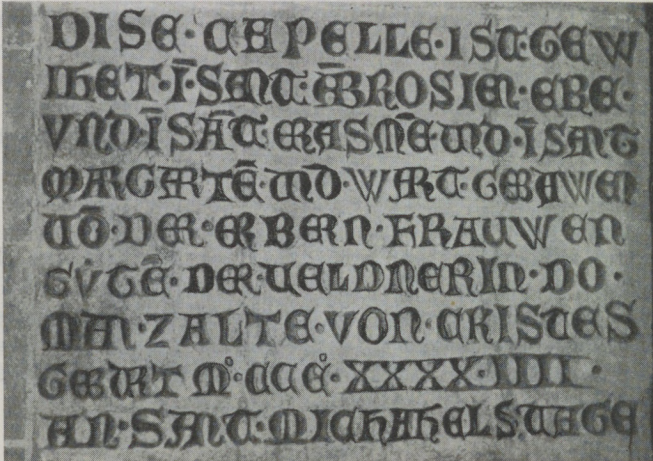 DISE·CAPELLE·IST·GEW
IHET·ĪSANT·AMBROSIEN·ERE·
VND·ĪSĀT·ERASMĒ·VND·ĪSANT
MARGARTĒ·VND·WART·GEBAWEN
VŌ·DER·ERBERN·FRAUWEN
GVTĒ·DER·VELDNERIN·DO·
MAN·ZALTE·VON·CRISTES
GEBVRT M°·CCC°·XXXX·IIII·
AN·SANT·MICHAHELS·TAGE